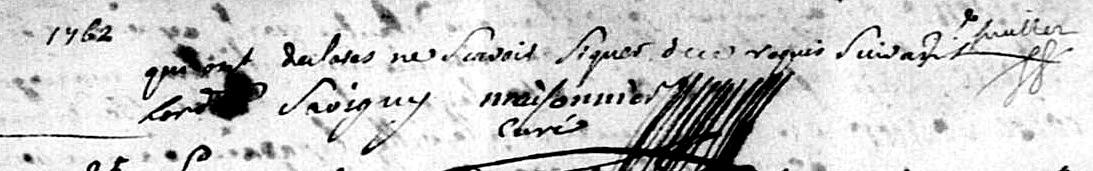 1762
qui ont declares ne Scavoir Signer de ce requis Suivant
Savigny maisonnier
curé